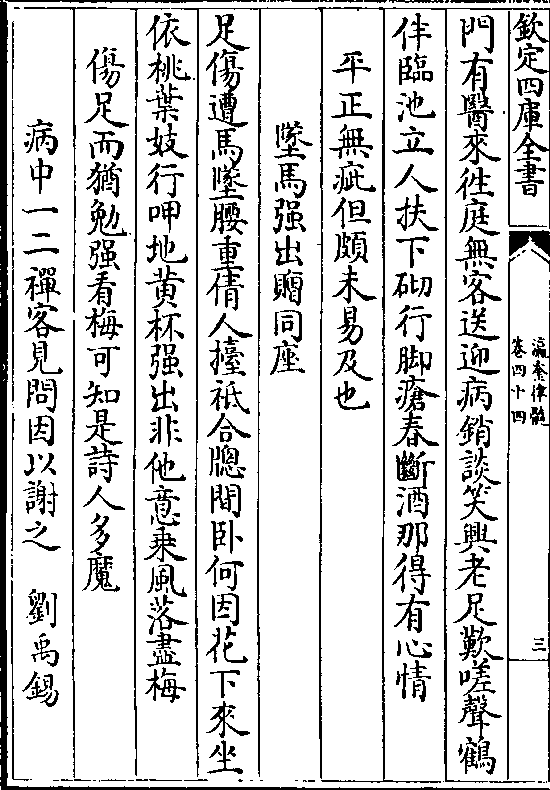 欽定四庫全書
瀛奎律髓
卷四十四
三
門有醫來徃庭無客送迎病銷談笑興老足歎嗟聲鶴
伴臨池立人扶下砌行脚瘡春斷酒那得有心情
平正無疵但頗未易及也
墜馬强出贈同座
足傷遭馬墜腰重倩人擡祇合牕間卧何因花下來坐
依桃葉妓行呷地黄杯强出非他意乗風落盡梅
傷足而猶勉强看梅可知是詩人多魔
病中一二禪客見問因以謝之 劉禹錫